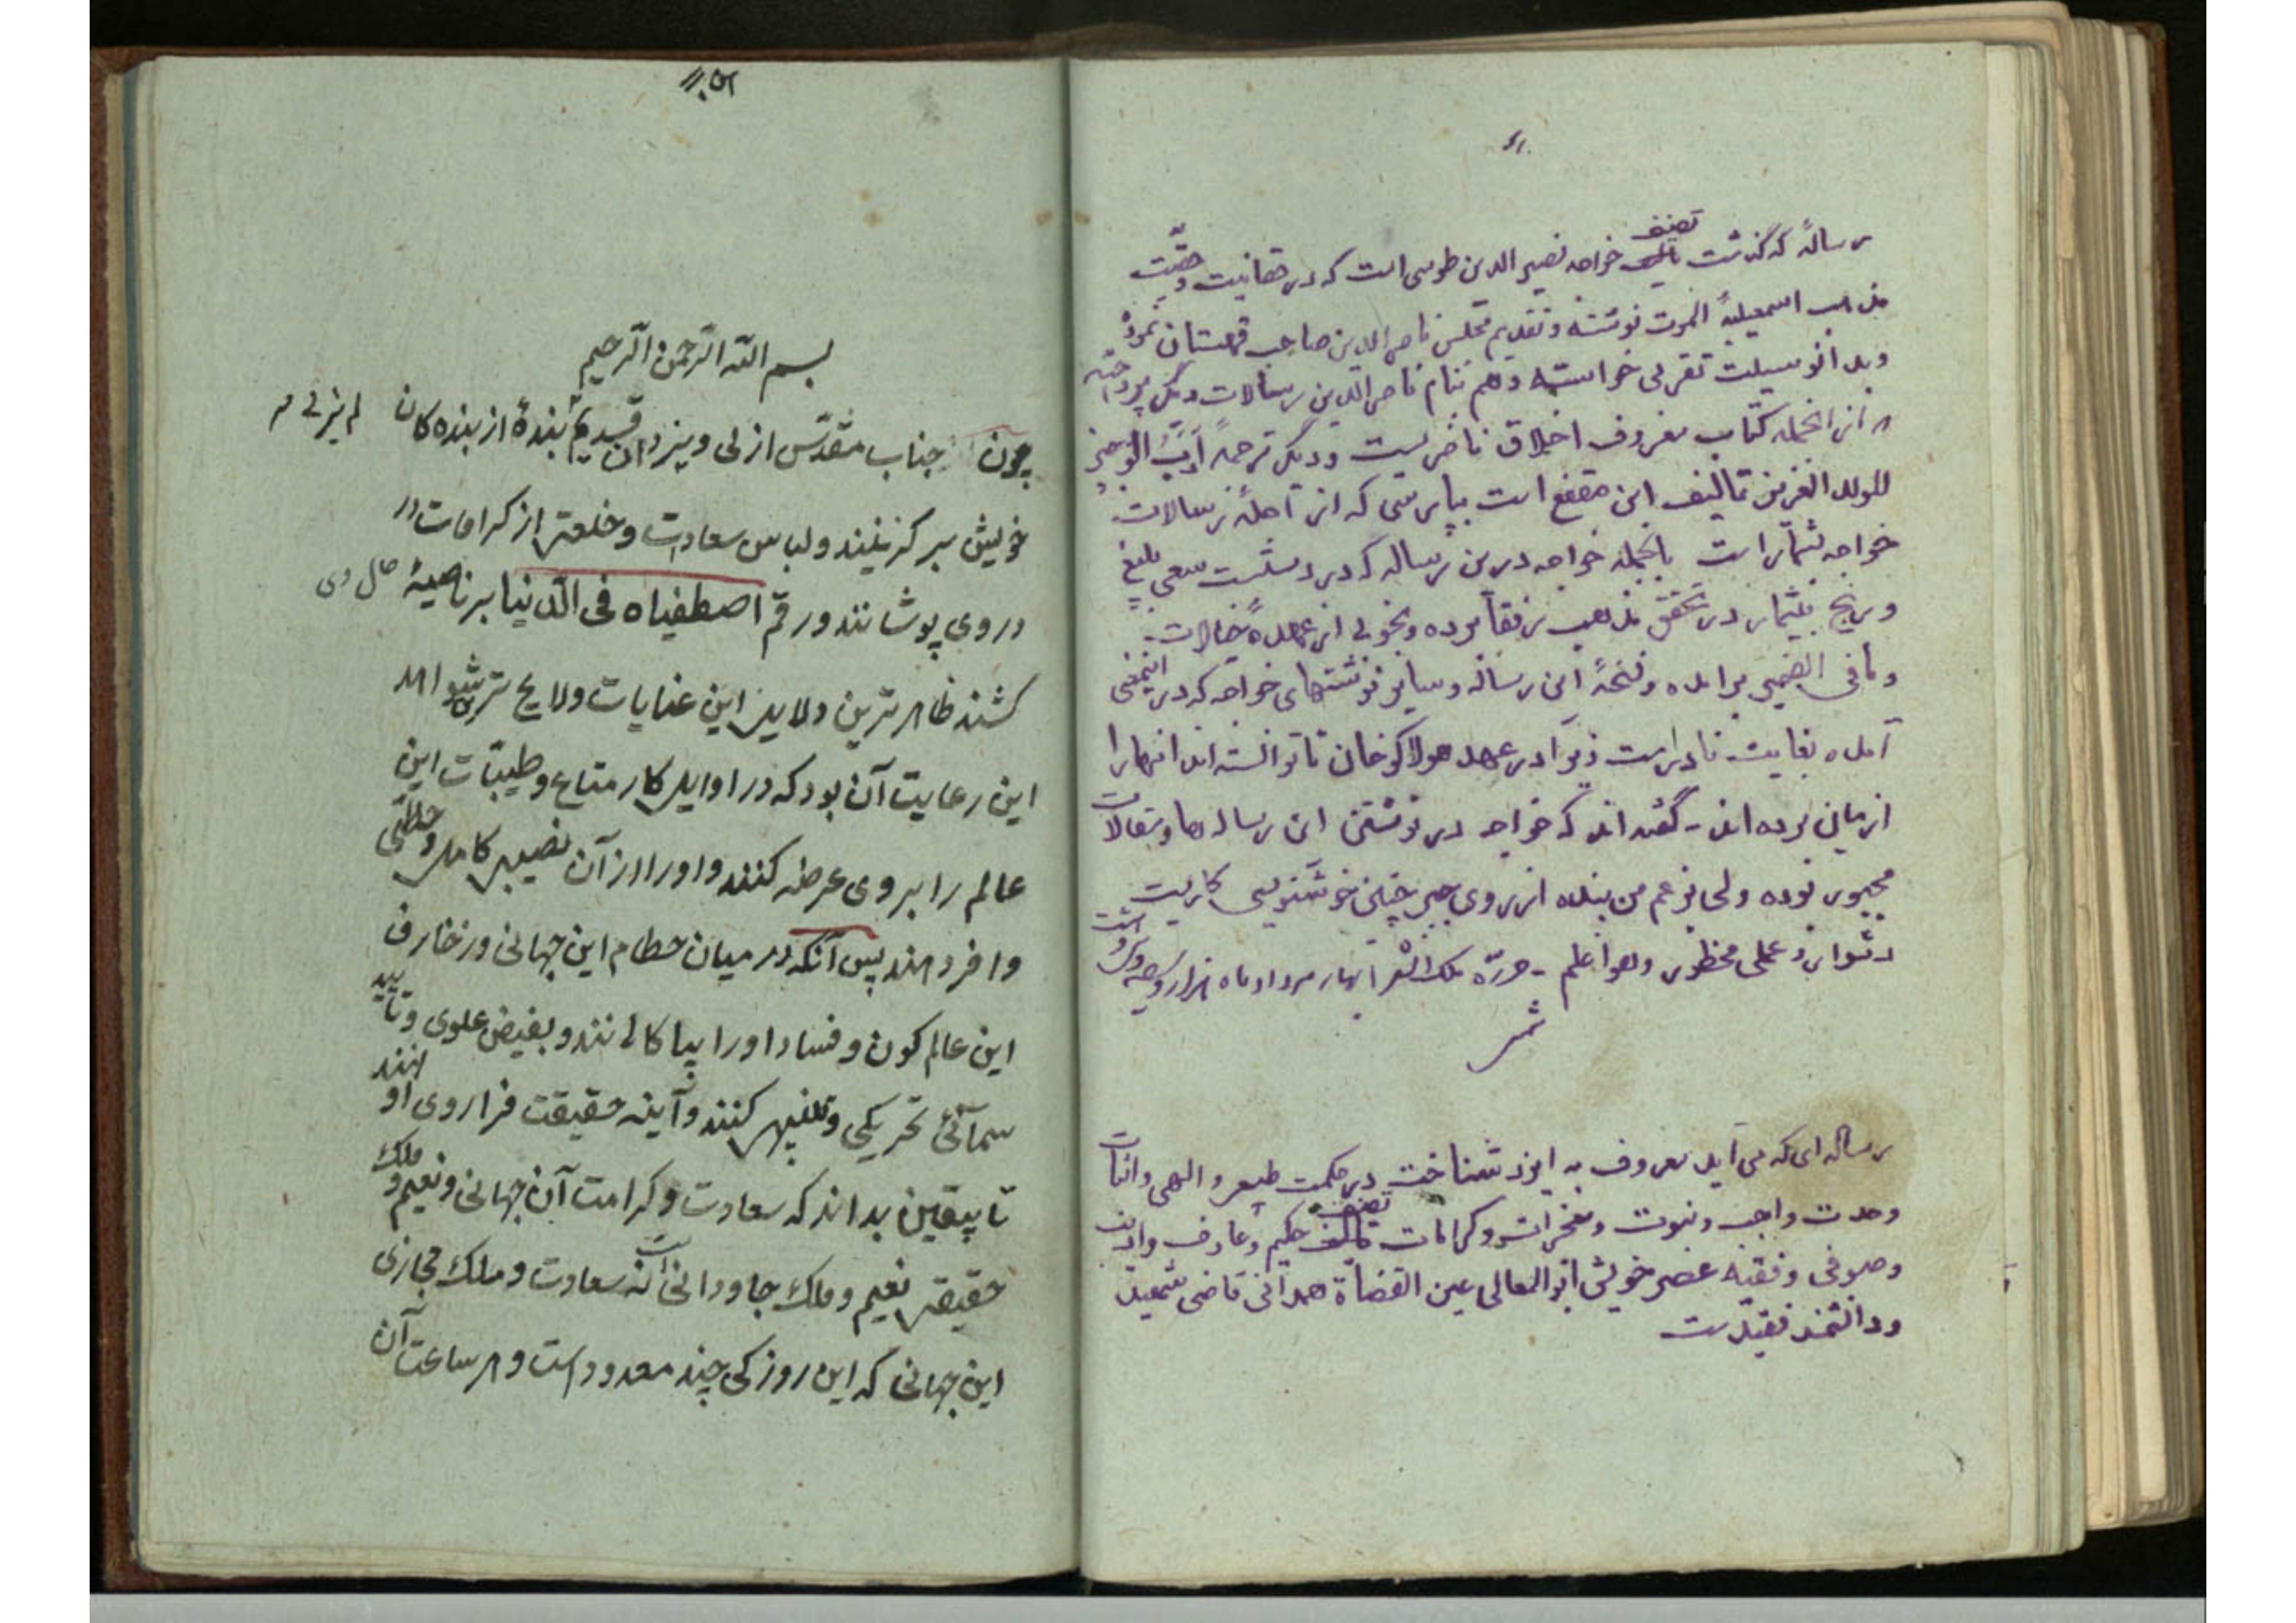 تصنیف
رسالهٔ که گذشت تالیف خواجه نصیر الدین طوسی است که در حقانیت و حقیّت
مذهب اسمعیلیهٔ الموت نوشته و تقدیم مجلس ناصر الدین صاحب قهستان نموده
و بدانوسیلت تقربی خواسته و هم بنام ناصر الدین رسالات دیگر پرداخته
که از آنجمله کتاب معروف اخلاق ناصریست و دیگر ترجمهٔ ادب الوجیز
للولد العزیز تالیف ابن مقفع است بپارسی که از اجلهٔ رسالات
خواجه بشمار است بالجمله خواجه درین رساله که در دستست سعی بلیغ
و رنج بیشمار در تحقق مذهب رفقا برده و بخوبی از عهده خیالات
و مافی الضمیر برآمده و نسخهٔ این رساله و سایر نوشتهای خواجه که در اینمعنی
آمده بغایت نادر است زیرا در عهد هولاکوخان تا توانسته اند آنها را
از میان برده اند - گفته اند که خواجه در نوشتن این رساله ها و مقالات
مجبور بوده ولی بزعم من بنده از روی جبر چنین خوشنویسی کاریست
دشوار و عملی محظور و هوا علم - حرره ملک الشعرا بهار مرداد ماه هزار و سیصد و
رساله ای که می آید معروف به ایزد شناخت در حکمت طبیعی و الهی و اثبات
وحدت واجب و نبوت و معجزات و کرامات تصنیف حکیم و عارف و ادیب
و صوفی و فقیه عصر خویش ابو المعالی عین القضاة همدانی قاضی شهید
و دانشمند فقید است
بسم الله الرحمن الرحیم
چون جناب مقدّس ازلی و یزدان قدیم بندهٔ از بنده کان لم یزلی
خویش برگزینند و لباس سعادت و خلعتی از کرامات در
در وی پوشانند و رقم اصطفیناه فی الدنیا بر ناصیهٔ حال وی
کشند ظاهرترین دلایل این عنایات و لایح ترین شواهد
این رعایت آن بود که در اوایل کار متاع و طیبات این
عالم را بر وی عرضه کنند و او را از آن نصیبی کامل و حظّی
وافر دهند پس آنکه در میان حطام این جهانی و زخارف
این عالم کون و فساد او را بپاکالانند و بفیض علوی و تایید
سمآئی تحریکی و تنبیهی کنند و آینه حقیقت فرا روی او نهند
تا بیقین بداند که سعادت و کرامت آن جهانی و نعیم و ملک
حقیقی نعیم و ملک جاودانی است نه سعادت و ملک مجازی
این جهانی که این روزکی چند معدود است و هر ساعت آن